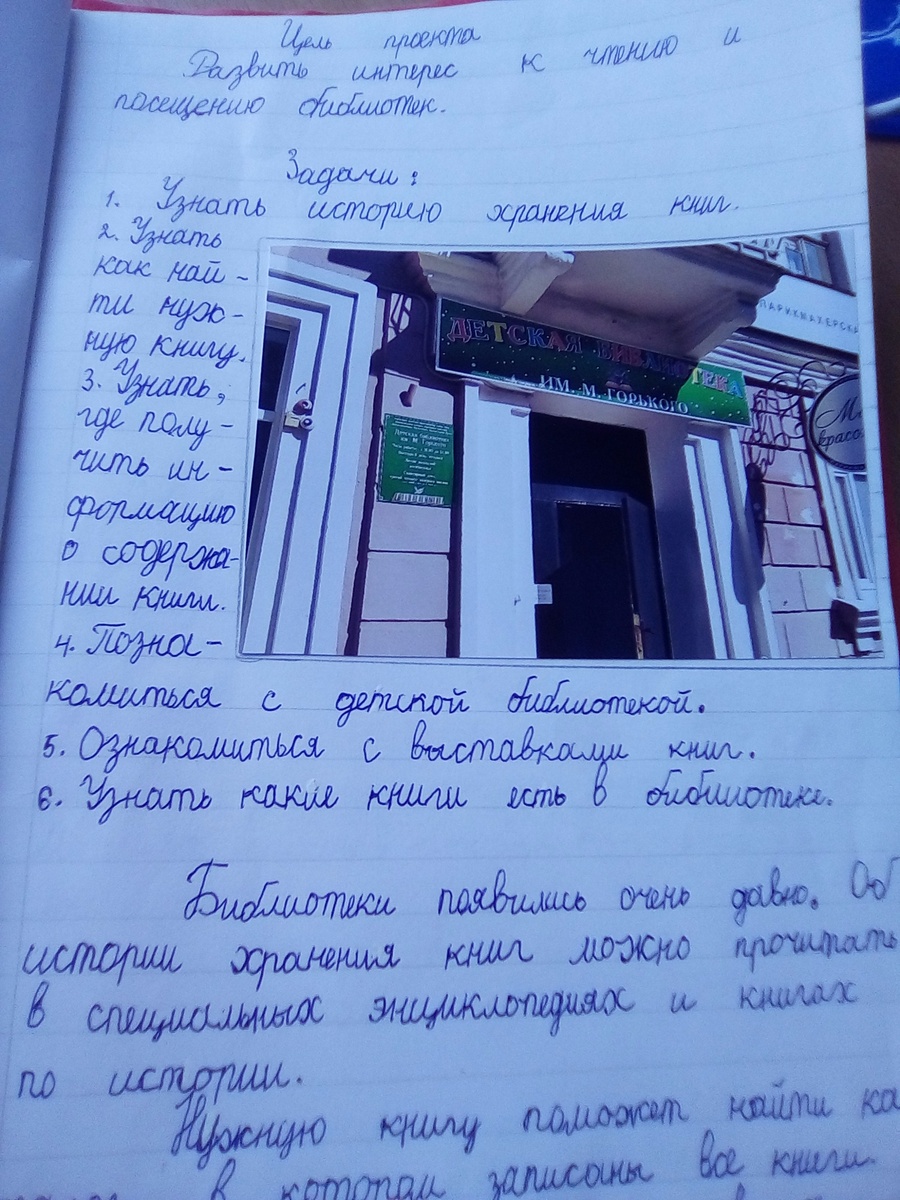 Цель проекта
Развить интерес к чтению и
посещению библиотек.
Задачи:
1. Узнать историю хранения книг.
2. Узнать
как най-
ти нуж-
ную книгу.
3. Узнать,
где полу-
чить ин-
формацию
о содержа-
нии книги.
4. Позна-
комиться с детской библиотекой.
5. Ознакомиться с выставками книг.
6. Узнать какие книги есть в библиотеке.
ДЕТСКАЯ БИБЛИОТЕКА
ИМ. М. ГОРЬКОГО
ПАРИКМАХЕРСКА
Детская библиотека
им. М. Горького
М
красо
Библиотеки появились очень давно. Об
истории хранения книг можно прочитать
в специальных энциклопедиях и книгах
по истории.
Нужную книгу поможет найти ка
в котором записаны все книги.